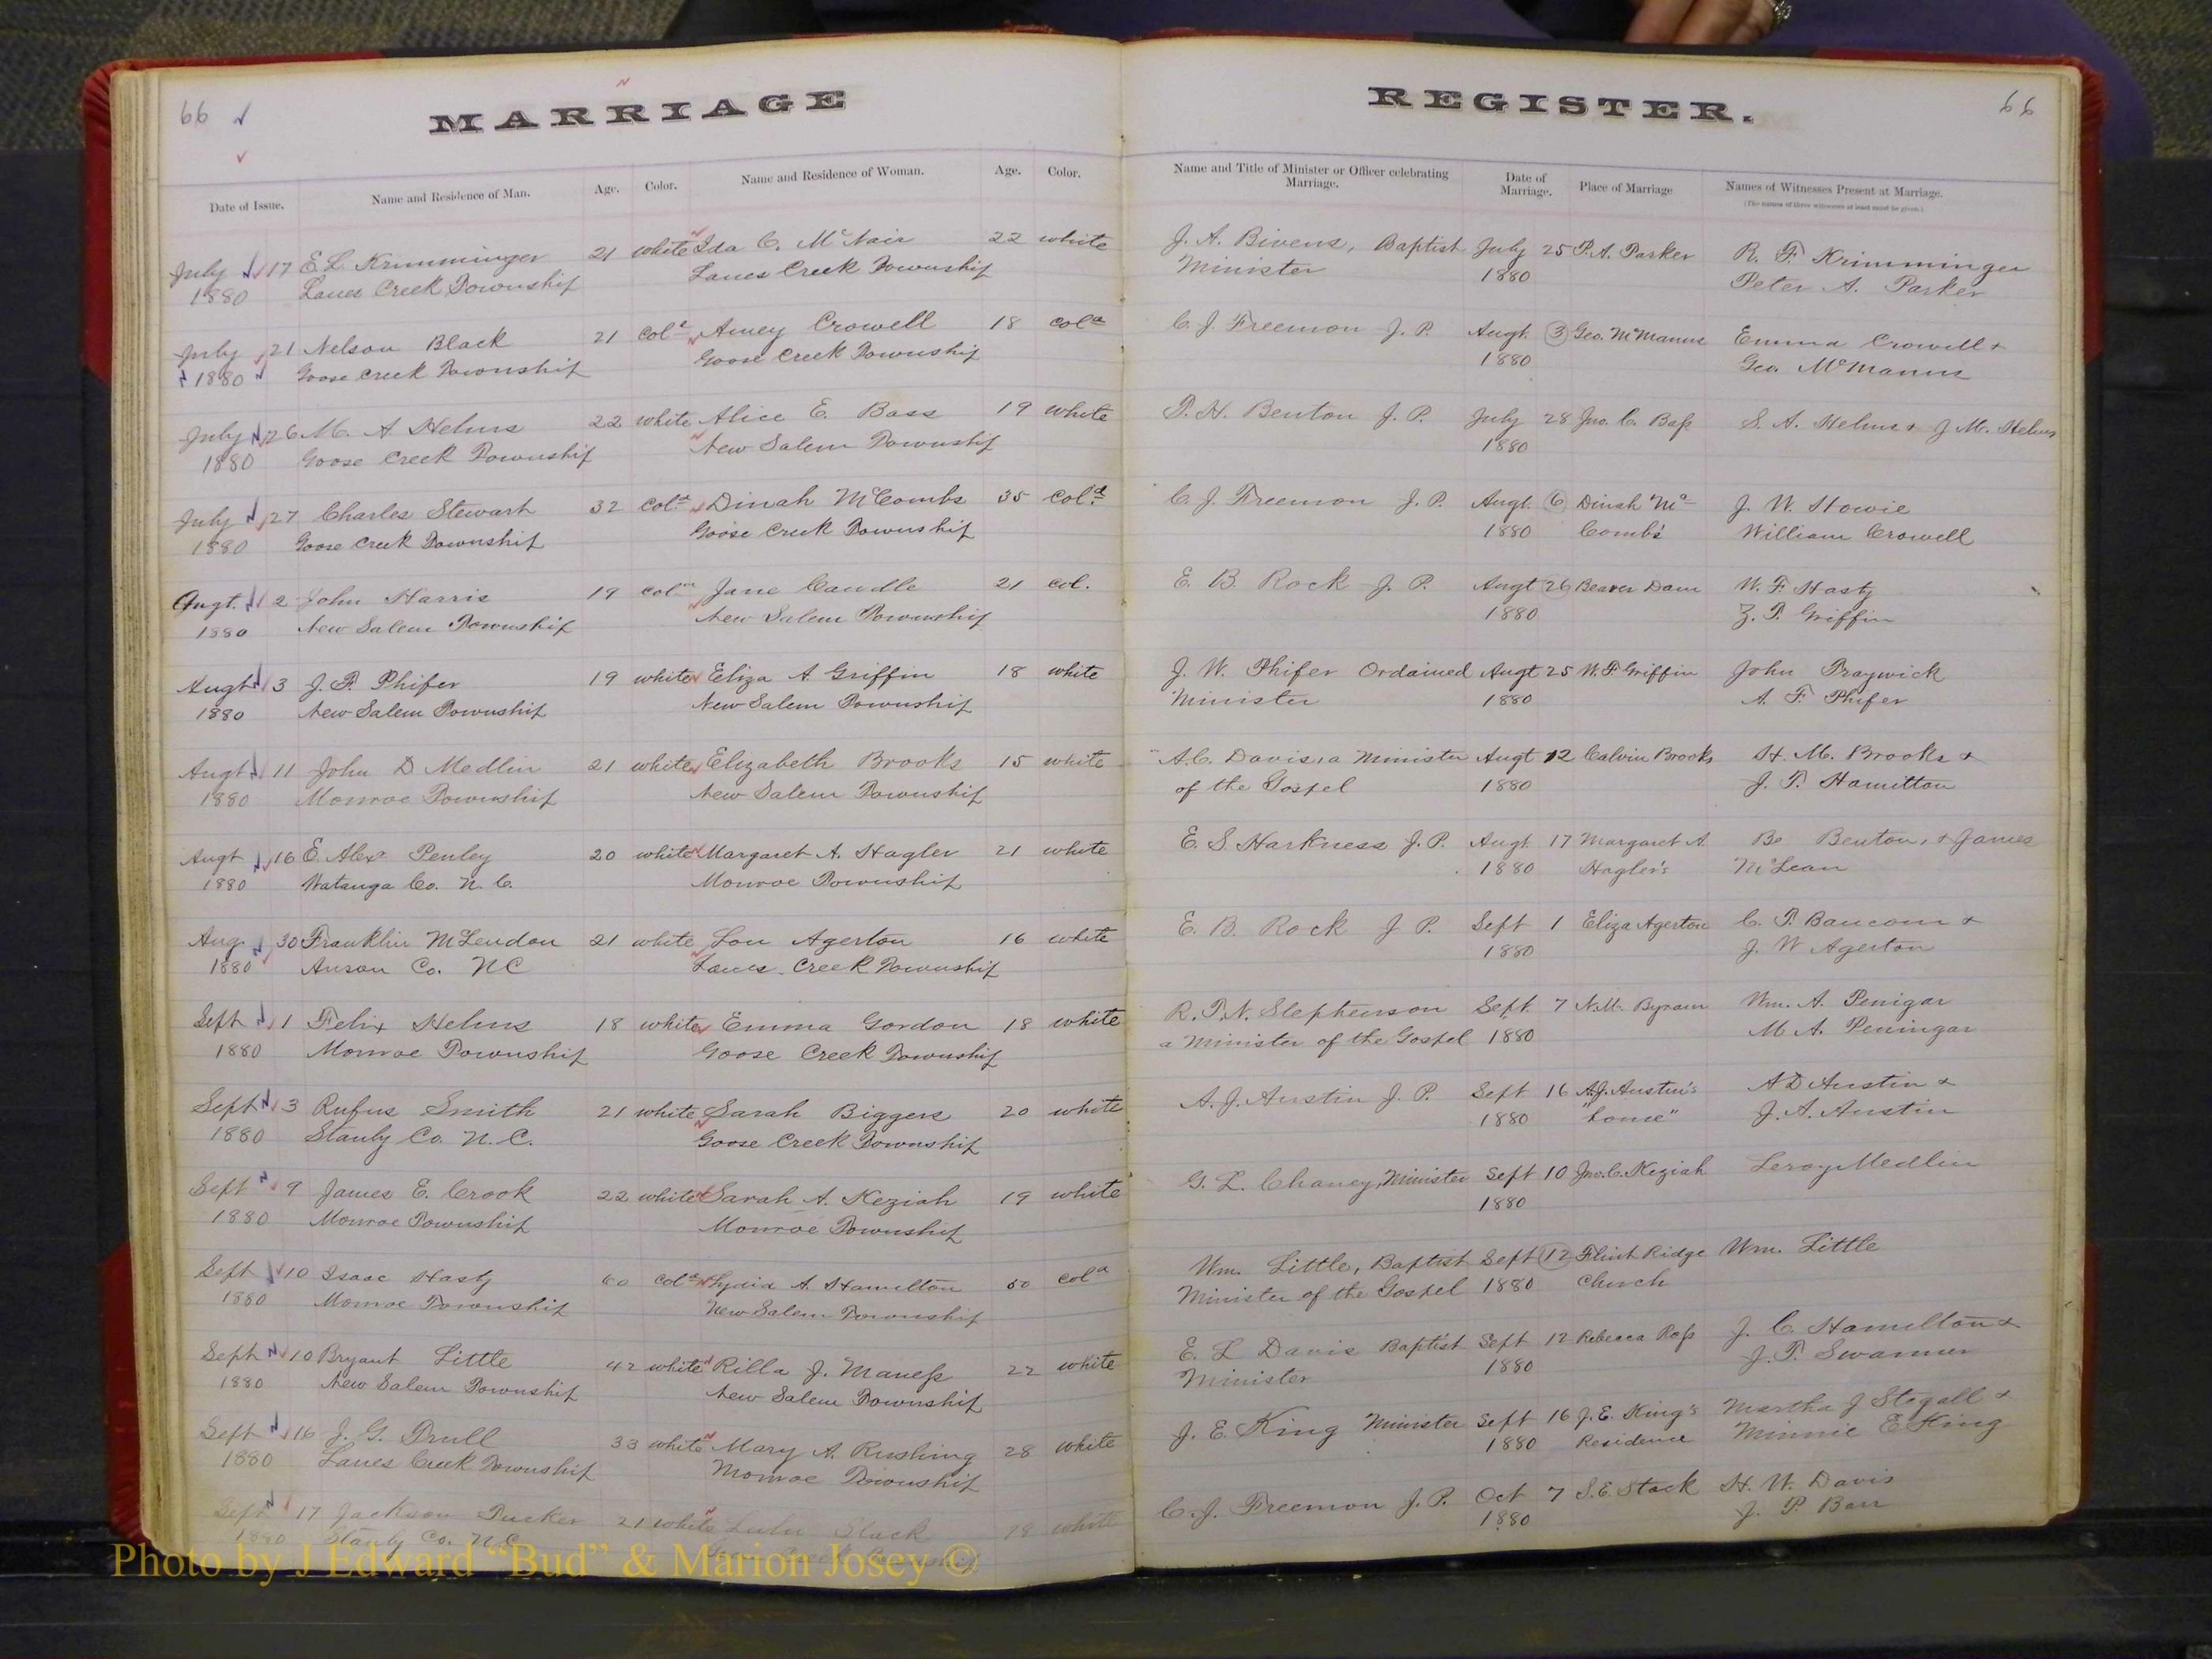 66
MARRIAGE
Date of Issue. Name and Residence of Man. Age. Color. Name and Residence of Woman. Age. Color.
July 17 E. L. Krimminger 21 white Ida C. McNair 22 white
1880 Lanes Creek Township Lanes Creek Township
July 21 Nelson Black 21 Cold Amey Crowell 18 Cold
1880 Goose Creek Township Goose Creek Township
July 26 M. A Helms 22 white Alice E. Bass 19 white
1880 Goose Creek Township New Salem Township
July 27 Charles Stewart 32 Cold Dinah McCombs 35 Cold
1880 Goose Creek Township Goose Creek Township
Augt. 2 John Harris 19 col Jane Caudle 21 col.
1880 New Salem Township New Salem Township
Augt 3 J. P. Phifer 19 white Eliza A. Griffin 18 white
1880 New Salem Township New Salem Township
Augt 11 John D Medlin 21 white Elizabeth Brooks 15 white
1880 Monroe Township New Salem Township
Augt 16 E. Alex. Penley 20 white Margaret A. Hagler 21 white
1880 Watauga Co. N. C. Monroe Township
Aug. 30 Franklin McLendon 21 white Lou Agerton 16 white
1880 Anson Co. NC Lanes Creek Township
Sept 1 Felix Helms 18 white Emma Gordon 18 white
1880 Monroe Township Goose Creek Township
Sept 3 Rufus Smith 21 white Sarah Biggers 20 white
1880 Stanly Co. N. C. Goose Creek Township
Sept 9 James E. Crook 22 white Sarah A. Keziah 19 white
1880 Monroe Township Monroe Township
Sept 10 Isaac Hasty 60 Cold Lydia A. Hamilton 50 Cold
1880 Monroe Township New Salem Township
Sept 10 Bryant Little 42 white Rilla J. Maness 22 white
1880 New Salem Township New Salem Township
Sept 16 J. G. Trull 33 white Mary A. Rushing 28 white
1880 Lanes Creek Township Monroe Township
Sept 17 Jackson Tucker 21 white Lulu Black 18 white
1880 Stanly Co. N.C. Township
REGISTER.
66
Name and Title of Minister or Officer celebrating Marriage. Date of Marriage. Place of Marriage Names of Witnesses Present at Marriage.
(The names of three witnesses at least must be given.)
J. A. Bivens, Baptist July 25 P. A. Parker R. F. Krimminger
Minister 1880 Peter A. Parker
C. J. Freemon J. P. Augt. 3 Geo. McManus Emma Crowell +
1880 Geo. McManus
P. H. Benton J. P. July 28 Jno. C. Bass S. A. Helms + J M. Helms
1880
C. J. Freemon J. P. Augt. 6 Dinah Mc- J. W. Howie
1880 Comb's William Crowell
E. B. Rock J. P. Augt 26 Beaver Dam W. F. Hasty
1880 Z. T. Griffin
J. W. Phifer Ordained Augt 25 W. F. Griffin John Traywick
Minister 1880 A. F. Phifer
A. C. Davis, a Minister Augt 12 Calvin Brooks H. M. Brooks +
of the Gospel 1880 J. T. Hamilton
E. S. Harkness J. P. Augt. 17 Margaret A. Benton, + James
1880 Hagler's McLean
E. B. Rock J P. Sept 1 Eliza Agerton C. T. Baucom +
1880 J. W Agerton
R. P. N. Stephenson Sept. 7 N. M. Byram Wm. A. Penigar
a Minister of the Gospel 1880 M A. Peningar
A. J. Austin J. P. Sept 16 A. J. Austin's A D Austin +
1880 "home" J. A. Austin
G. L. Chaney, Minister Sept 10 Jno. C. Keziah Leroy Medlin
1880
Wm. Little, Baptist Sept 12 Flint Ridge Wm. Little
Minister of the Gospel 1880 Church
E. L Davis Baptist Sept 12 Rebecca Ross J. C. Hamilton +
Minister 1880 J. T. Swanner
J. E. King Minister Sept 16 J. E. King's Martha J Stegall +
1880 Residence Minnie E King
C. J. Freemon J. P. Oct 7 S. E. Stack H. W. Davis
1880 J. P. Barr
Photo by J Edward “Bud” & Marion Josey ©